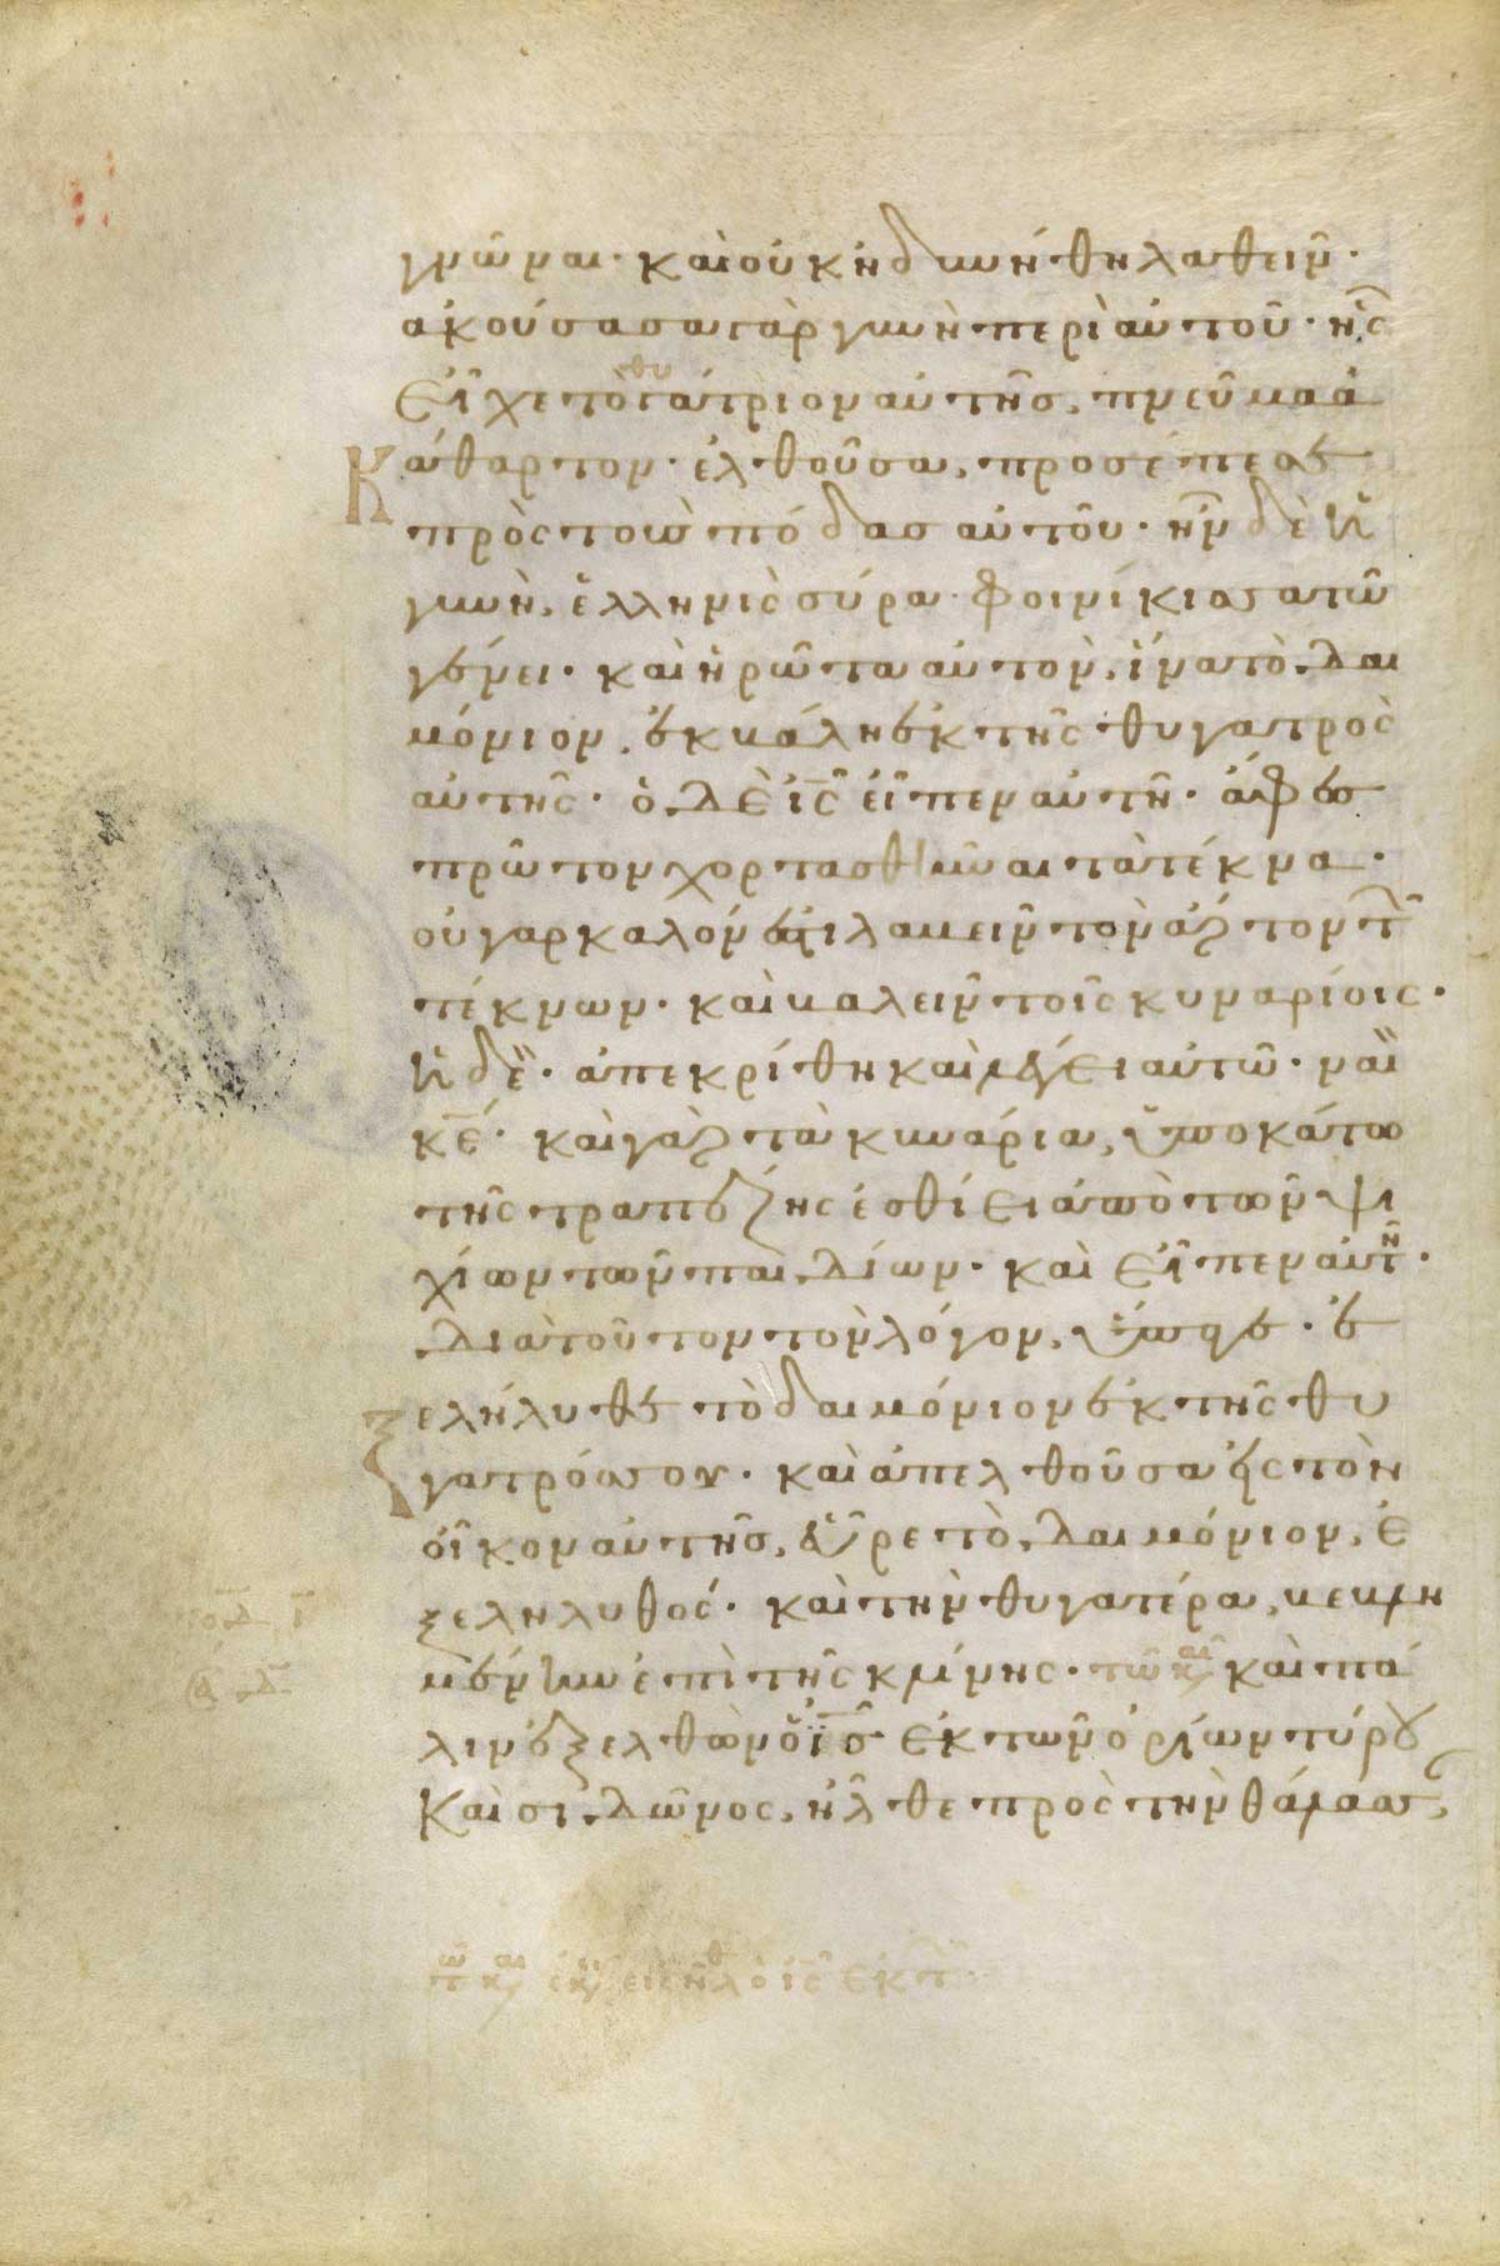 γνῶναι· καὶ οὐκ ἠδυνήθη λαθεῖν·
ἀκούσασα γὰρ γυνὴ περὶ αὐτοῦ· ἧς
εἶχε τὸ θυγάτριον αὐτῆς, πνεῦμα ἀ
Κάθαρτον· ἐλθοῦσα, προσέπεσε
πρὸς τοὺς πόδας αὐτοῦ· ἦν δὲ ἡ
γυνὴ, ἑλληνὶς σύρα φοινίκισσα τῶ
γένει· καὶ ἠρῶτα αὐτὸν, ἵνα τὸ δαι
μόνιον, ἐκβάλη ἐκ τῆς θυγατρὸς
αὐτῆς· ὁ δὲ ἰς εἶπεν αὐτῆ· ἄφες
πρῶτον χορτασθῆναι τὰ τέκνα·
οὐ γαρ καλόν ἐστι λαβεῖν τὸν ἄρτον τ
τέκνων· καὶ βαλεῖν τοῖς κυναρίοις·
ἡ δὲ· ἀπεκρίθη καὶ λέγει αὐτῶ· ναὶ
κε· καὶ γὰρ τὰ κυνάρια, ὑποκάτω
τῆς τραπέζης ἐσθίει ἀπὸ τῶν ψι
χίων τῶν παιδίων· καὶ εἶπεν αὐτῆ·
διὰ τοῦτον τὸν λόγον, ὕπαγε· ἐ
ξελήλυθε τὸ δαιμόνιον ἐκ τῆς θυ
γατρός σου· καὶ ἀπελθοῦσα εἰς τὸν
οἶκον αὐτῆς, εὗρε τὸ δαιμόνιον, ἐ
ξεληλυθός· καὶ τὴν θυγατέρα, βεβλη
μένην ἐπὶ τῆς κλίνης· τῶ κ καὶ πά
λιν ἐξελθὼν ὁ ἰς ἐκ τῶν ὁρίων τύρου
Καὶ σιδῶνος, ἦλθε πρὸς τὴν θάλασσ